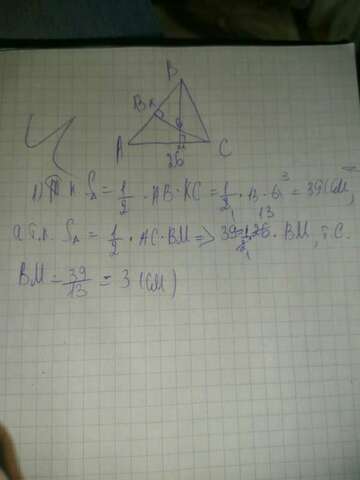 B
A
C
26
S△ = 1/2 · AB · KC = 1/2 · 13 · 6 = 39 (см²),
а т.к. S△ = 1/2 · AC · BM => 39 = 1/2 · 26 · BM, т.е.
BM = 39/13 = 3 (см)